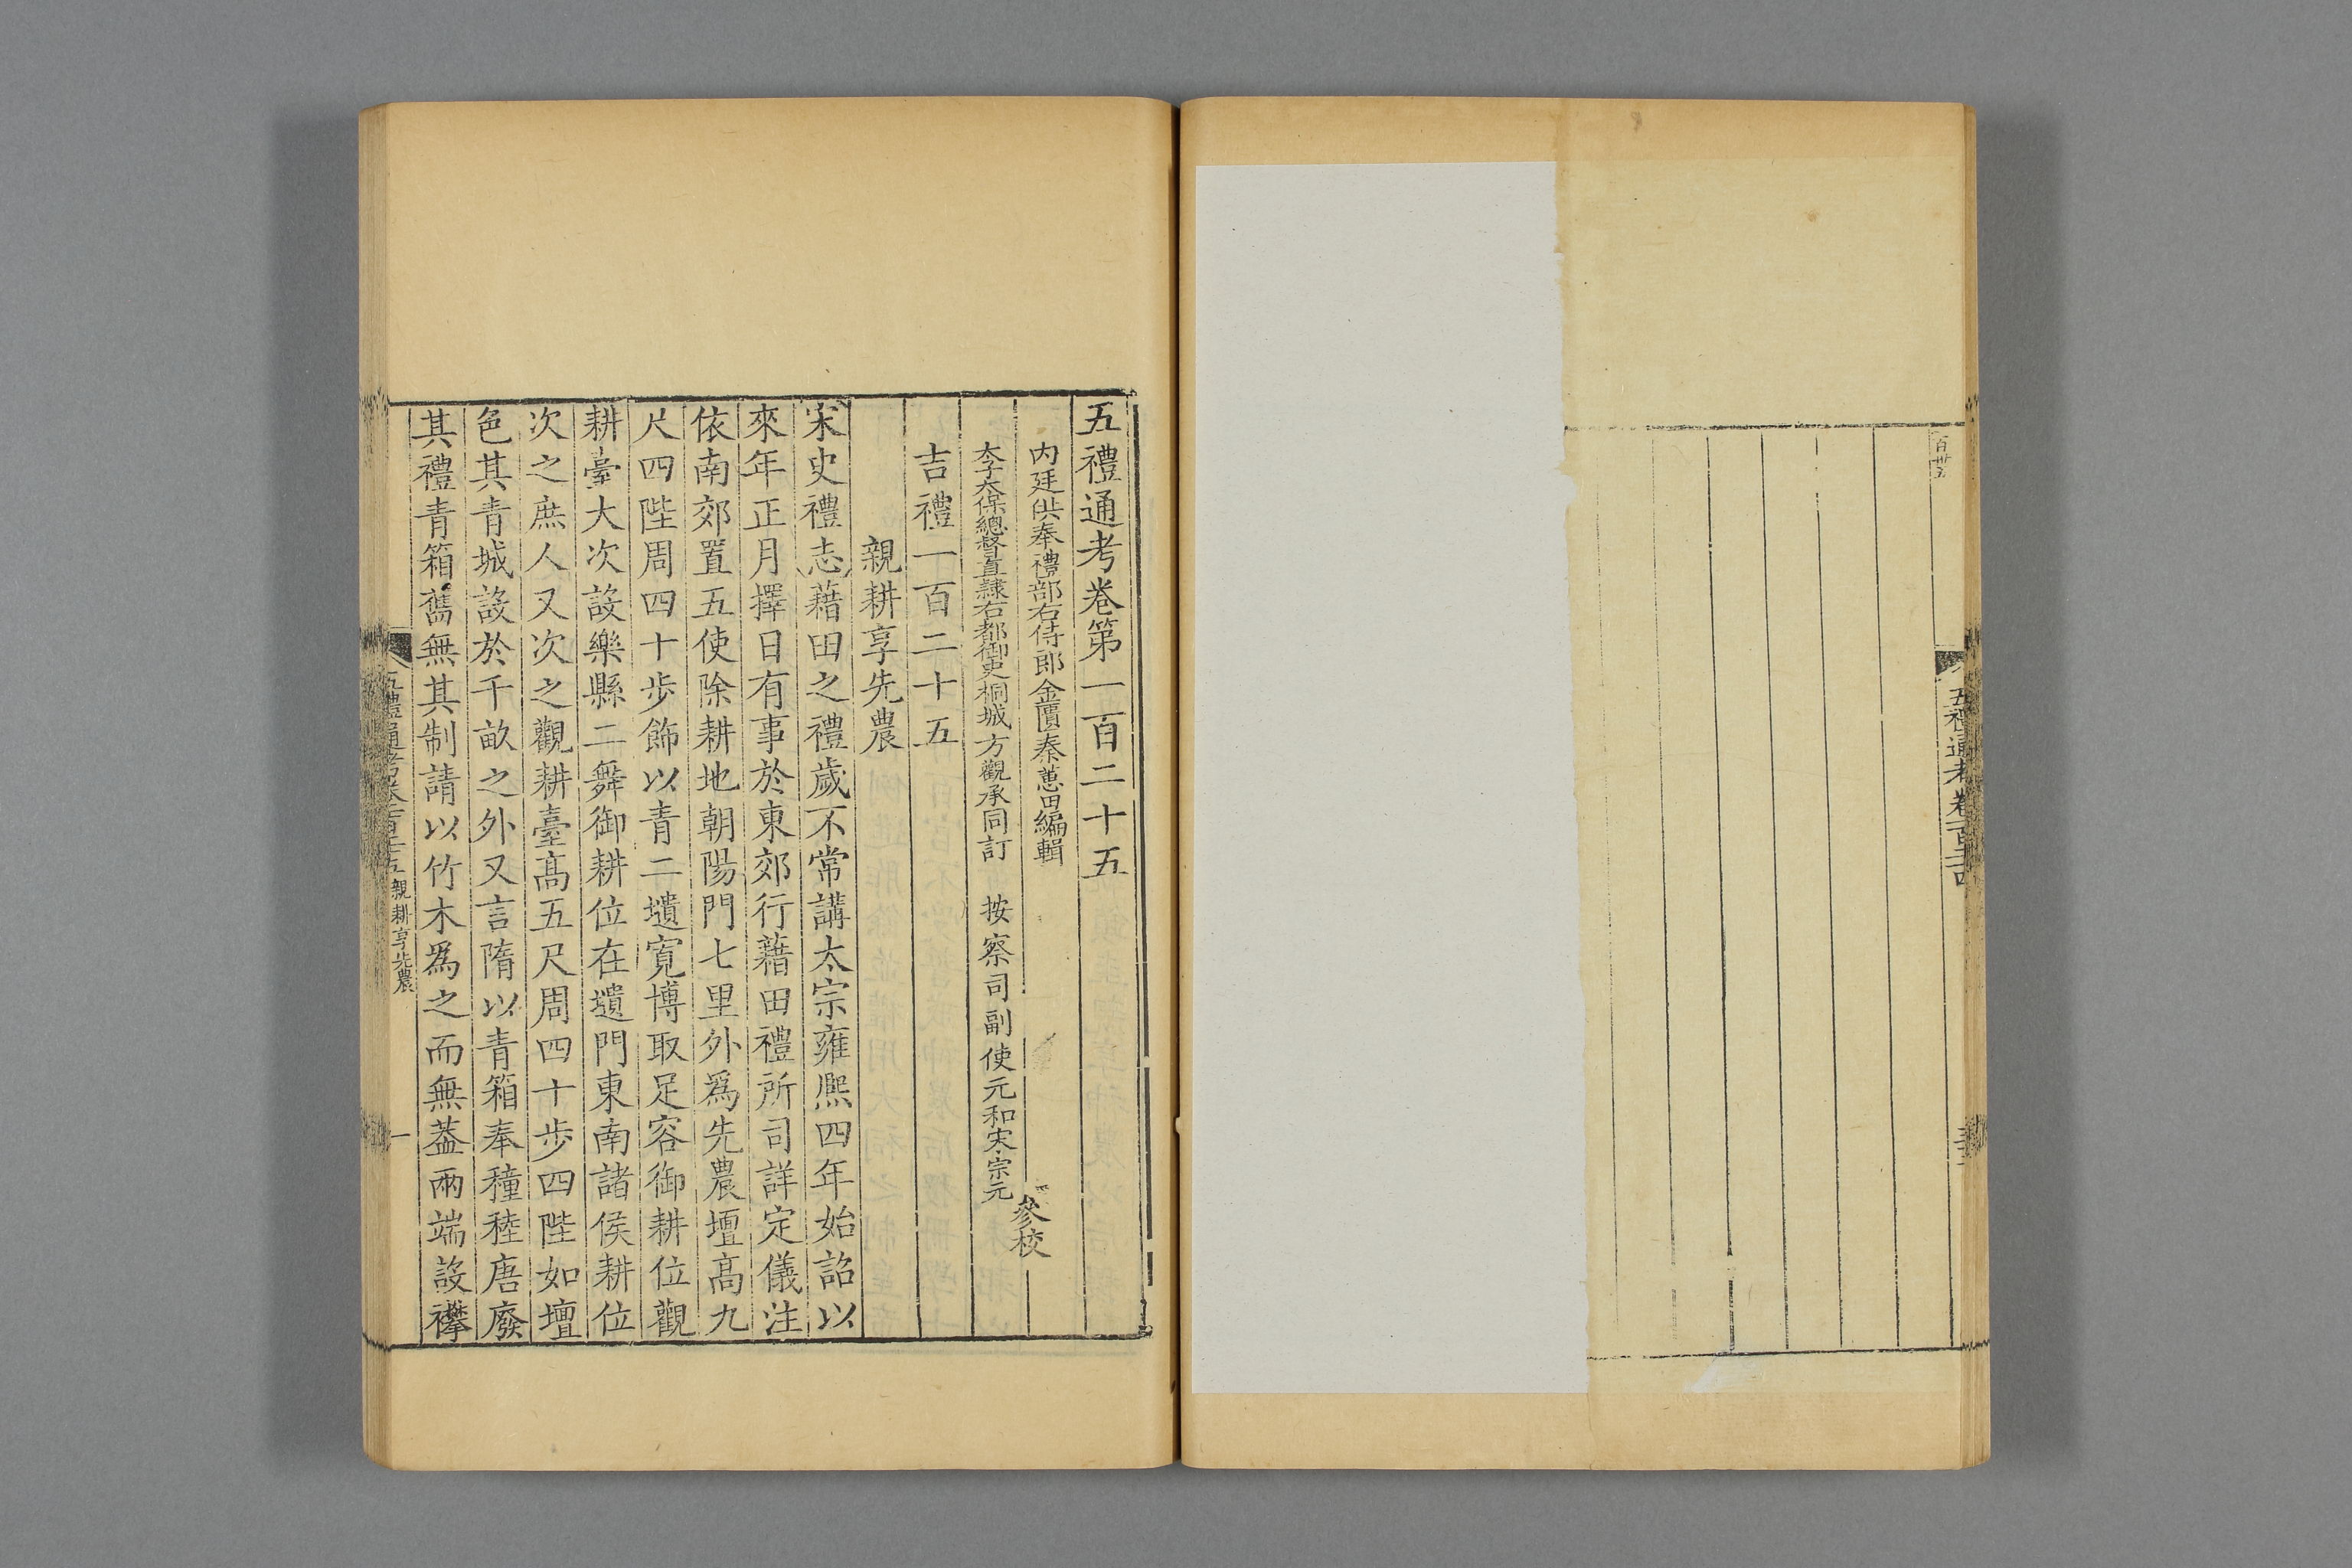 五禮通考卷一百二十四
五禮通考卷第一百二十五
内廷供奉禮部右侍郎金匱秦蕙田編輯
太子太保總督直隷右都御史桐城方觀承同訂
按察司副使元和宋宗元
參校
吉禮一百二十五
親耕享先農
宋史禮志藉田之禮歲不常講太宗雍熙四年始詔以
來年正月擇日有事於東郊行藉田禮所司詳定儀注
依南郊置五使除耕地朝陽門七里外爲先農壇高九
尺四陛周四十步飾以青二壝寛博取足容御耕位觀
耕臺大次設樂縣二舞御耕位在壝門東南諸侯耕位
次之庶人又次之觀耕臺高五尺周四十步四陛如壇
色其青城設於千畝之外又言隋以青箱奉穜稑唐廢
其禮青箱舊無其制請以竹木爲之而無葢兩端設襻
五禮通考卷一百二十五 親耕享先農 一